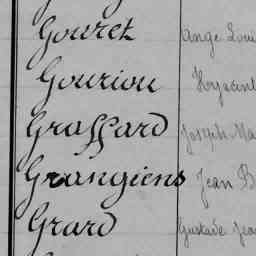 Gouret Ange Loui
Gouriou Hyacint
Graffard Joseph Ma
Grangiens Jean B
Grard Gustave Jea